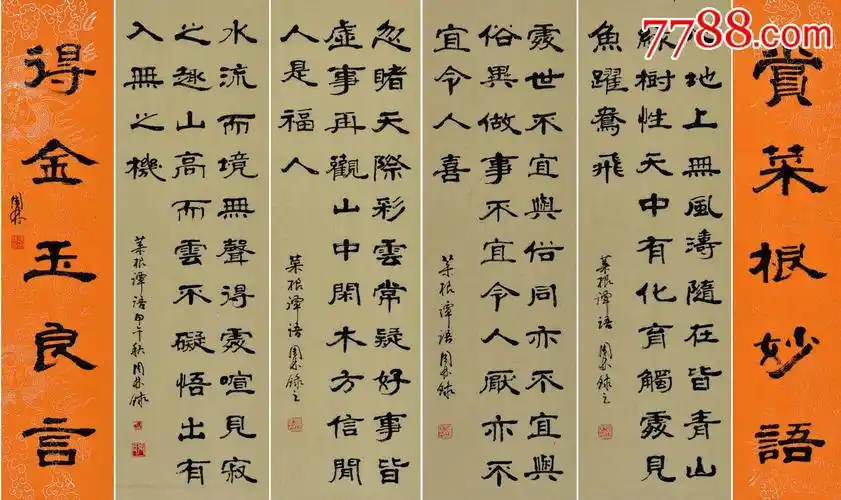 7788.com
賞菜根妙語
心地上無風濤隨在皆青山
綠樹性天中有化育觸處見
魚躍鳶飛
菜根譚語 周林錄之
處世不宜與俗同亦不宜與
俗異做事不宜令人厭亦不
宜令人喜
菜根譚語 周林錄之
忽睹天際彩雲常疑好事皆
虛事再觀山中閑木方信閑
人是福人
菜根譚語 周林錄之
水流而境無聲得處喧見寂
之趣山高而雲不礙悟出有
入無之機
菜根譚語甲午秋周林錄
得金玉良言
周林